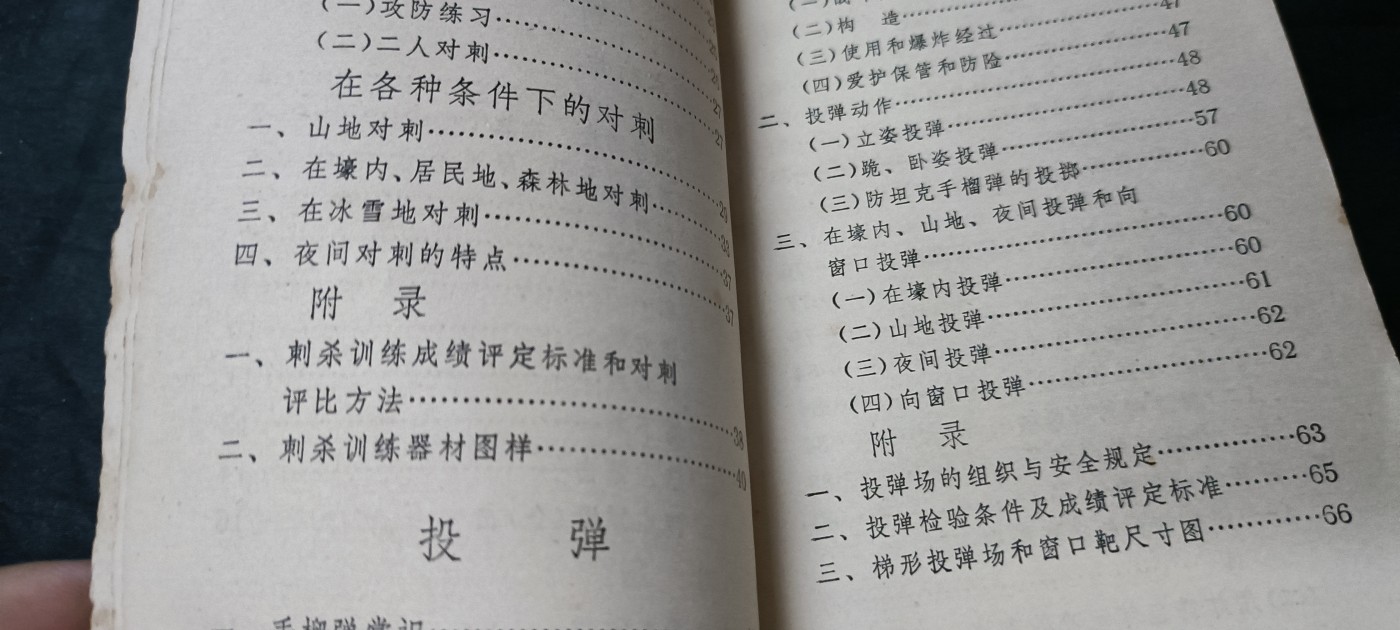 (一)攻防练习……
(二)二人对刺……
在各种条件下的对刺
一、山地对刺……29
二、在壕内、居民地、森林地对刺……33
三、在冰雪地对刺……37
四、夜间对刺的特点……37
附 录
一、刺杀训练成绩评定标准和对刺
评比方法……38
二、刺杀训练器材图样……40
投 弹
手榴弹常识……
(二)构 造……
(三)使用和爆炸经过……47
(四)爱护保管和防险……47
二、投弹动作……48
(一)立姿投弹……48
(二)跪、卧姿投弹……57
(三)防坦克手榴弹的投掷……60
三、在壕内、山地、夜间投弹和向
窗口投弹……60
(一)在壕内投弹……60
(二)山地投弹……61
(三)夜间投弹……62
(四)向窗口投弹……62
附 录
一、投弹场的组织与安全规定……63
二、投弹检验条件及成绩评定标准……65
三、梯形投弹场和窗口靶尺寸图……66